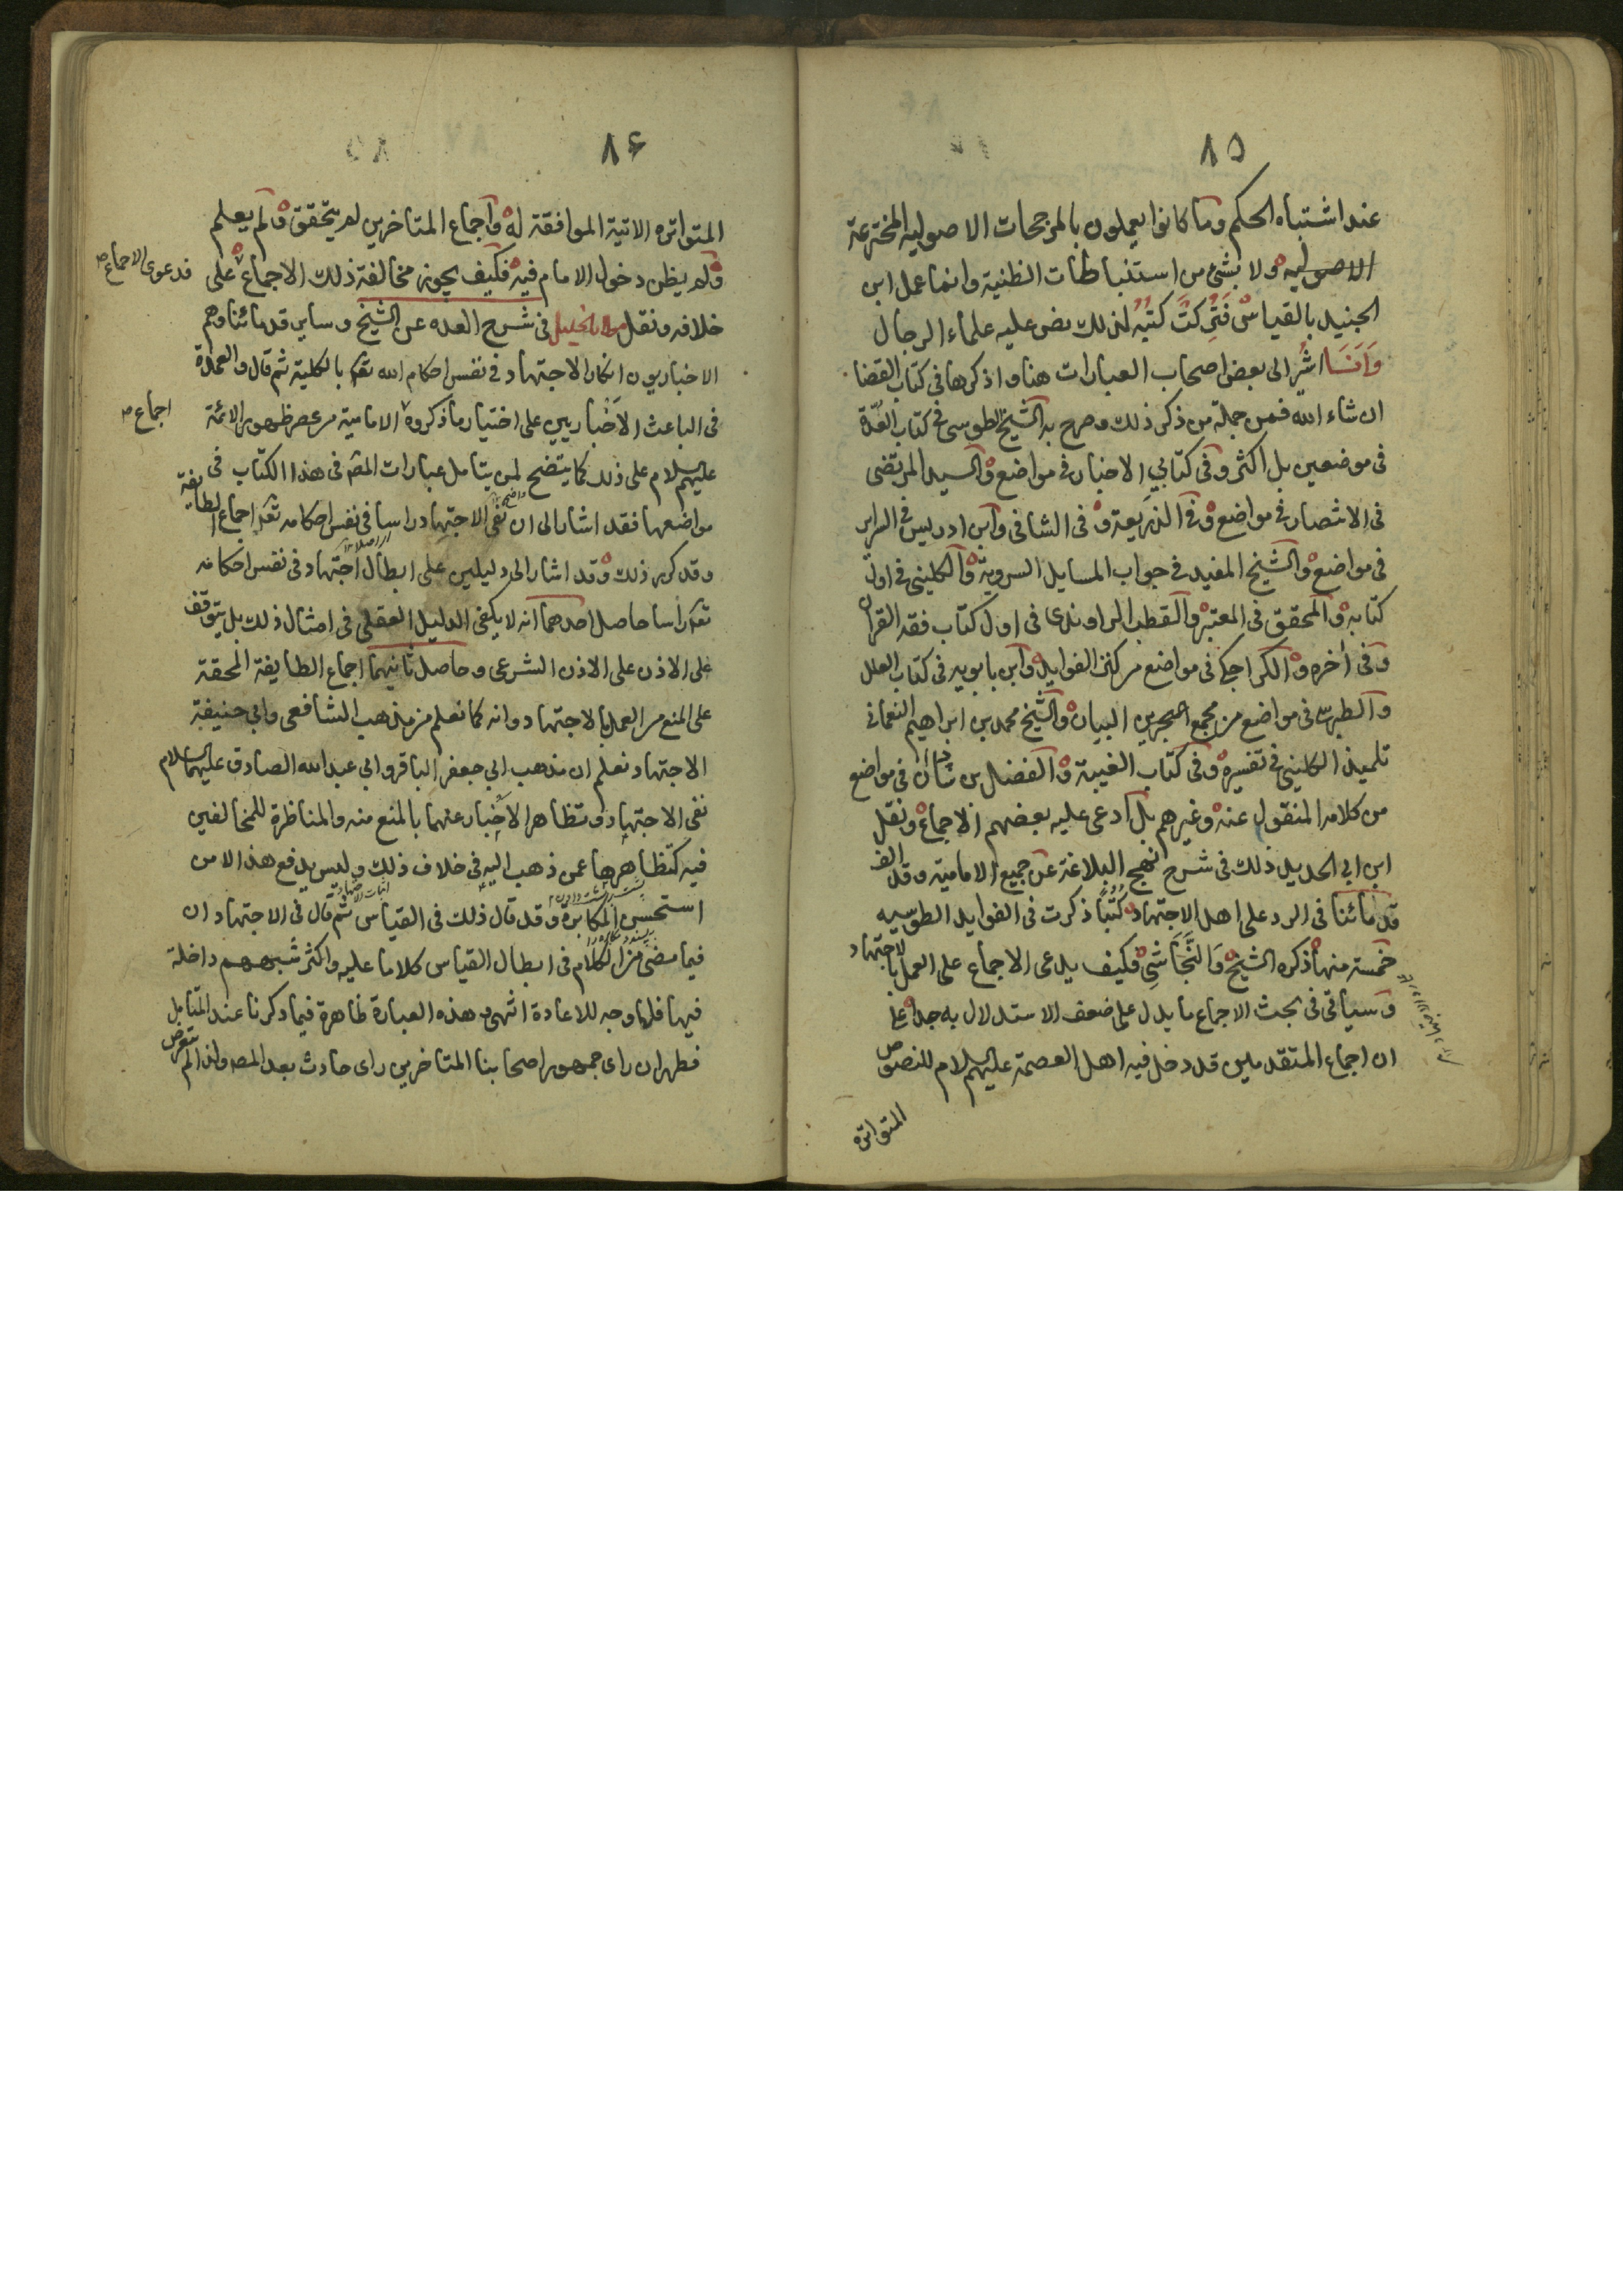 ٨٥
عند اشتباه الحكم وما كانوا يعملون بالمرجحات الاصوليه المخترعة
الاصوليه ولا بشئ من استنباطات الظنية وانما عمل ابن
الجنيد بالقياس فَتُرِكتْ كتبُه لذلك نص عليه علماء الرجال
وَاَنَا اشُر الى بعض اصحاب العبارات هنا واذكرها فى كتاب القضا
ان شاء الله فمن جملة من ذكر ذلك وصرح به الشيخ الطوسى فى كتاب العُدّة
فى موضعين بل اكثر وفى كتابي الاخبار فى مواضع والسيد المرتضى
فى الانتصار فى مواضع وفى الذريعة وفى الشافى وابن ادريس فى السراير
فى مواضع والشيخ المفيد فى جواب المسايل السروية والكلينى فى اول
كتابه والمحقق فى المعتبر والقطب الراوندى فى اول كتاب فقه القران
وفى أخره والكراجكى فى مواضع من كنز الفوايد وابن بابويه فى كتاب العلل
والطبرسى فى مواضع من مجمع البيان والشيخ محمد بن ابراهيم النعمانى
تلميذ الكلينى فى تفسيره وفى كتاب الغيبة والفضل بن شاذان فى مواضع
من كلامه المنقول عنه وغيرهم بل ادعى عليه بعضهم الاجماع ونقل
ابن ابي الحديد ذلك فى شرح نهج البلاغة عن جميع الامامية وقد الف
قدمائنا فى الرد على اهل الاجتهاد كُتُبًا ذكرت فى الفوايد الطوسيه
خمسة منها ذكره الشيخ وَالنَّجَاشِى فكيف يدعى الاجماع على العمل بالاجتهاد
وسياتى فى بحث الاجماع ما يدل على ضعف الاستدلال به جدا على
ان اجماع المتقدمين قد دخل فيه اهل العصمة عليهم السلام للنصوص
المتواتره
٨۶
المتواتره الاتية الموافقة له واجماع المتاخرين لم يتحقق ولم يعلم
ولم يظن دخول الامام فيه فكيف يجوز مخالفة ذلك الاجماع على
فدعوى الاجماع صح
خلافه ونقل مولانا خليل فى شرح العده عن الشيخ وساير قدمائنا وهم
الاخباريون انكار الاجتهاد فى نفس احكام الله تعالى بالكلية ثم قال والعمدة
فى الباعث الاخباريين على اختيار ما ذكروه الامامية من عصر ظهور الائمة
اجماع صح
عليهم السلام على ذلك كما يتضح لمن يتامل عبارات المصنف فى هذا الكتاب فى
مواضعها فقد اشار الى ان نفى الاجتهاد راسا فى نفس احكامه تعالى اجماع الطايفة
وقد كرر ذلك وقد اشار الى دليلين على ابطال اجتهاد فى نفس احكامه
تعالى رأسا حاصل احدهما انه لا يكفى الدليل العقلى فى امثال ذلك بل يتوقف
على الاذن على الاذن الشرعى وحاصل ثانيهما اجماع الطايفة المحقة
على المنع من العمل بالاجتهاد وانه كما نعلم من مذهب الشافعى وابي حنيفة
الاجتهاد نعلم ان مذهب ابي جعفر الباقر وابي عبد الله الصادق عليهما السلام
نفى الاجتهاد وتظاهر الاخبار عنهما بالمنع منه والمناظرة للمخالفين
فيه كتظاهرها عمن ذهب اليه فى خلاف ذلك وليس يدفع هذا الا من
استحسن المكابرة وقد قال ذلك فى القياس ثم قال فى الاجتهاد ان
فيما مضى من الكلام فى ابطال القياس كلاما عليه واكثر شبههم داخلة
فيها فلا وجه للاعادة انتهى وهذه العبارة ظاهرة فيما ذكرنا عند المتامل
فظهر ان راى جمهور اصحابنا المتاخرين راى حادث بعد المصنف ولذا لم يتعرض